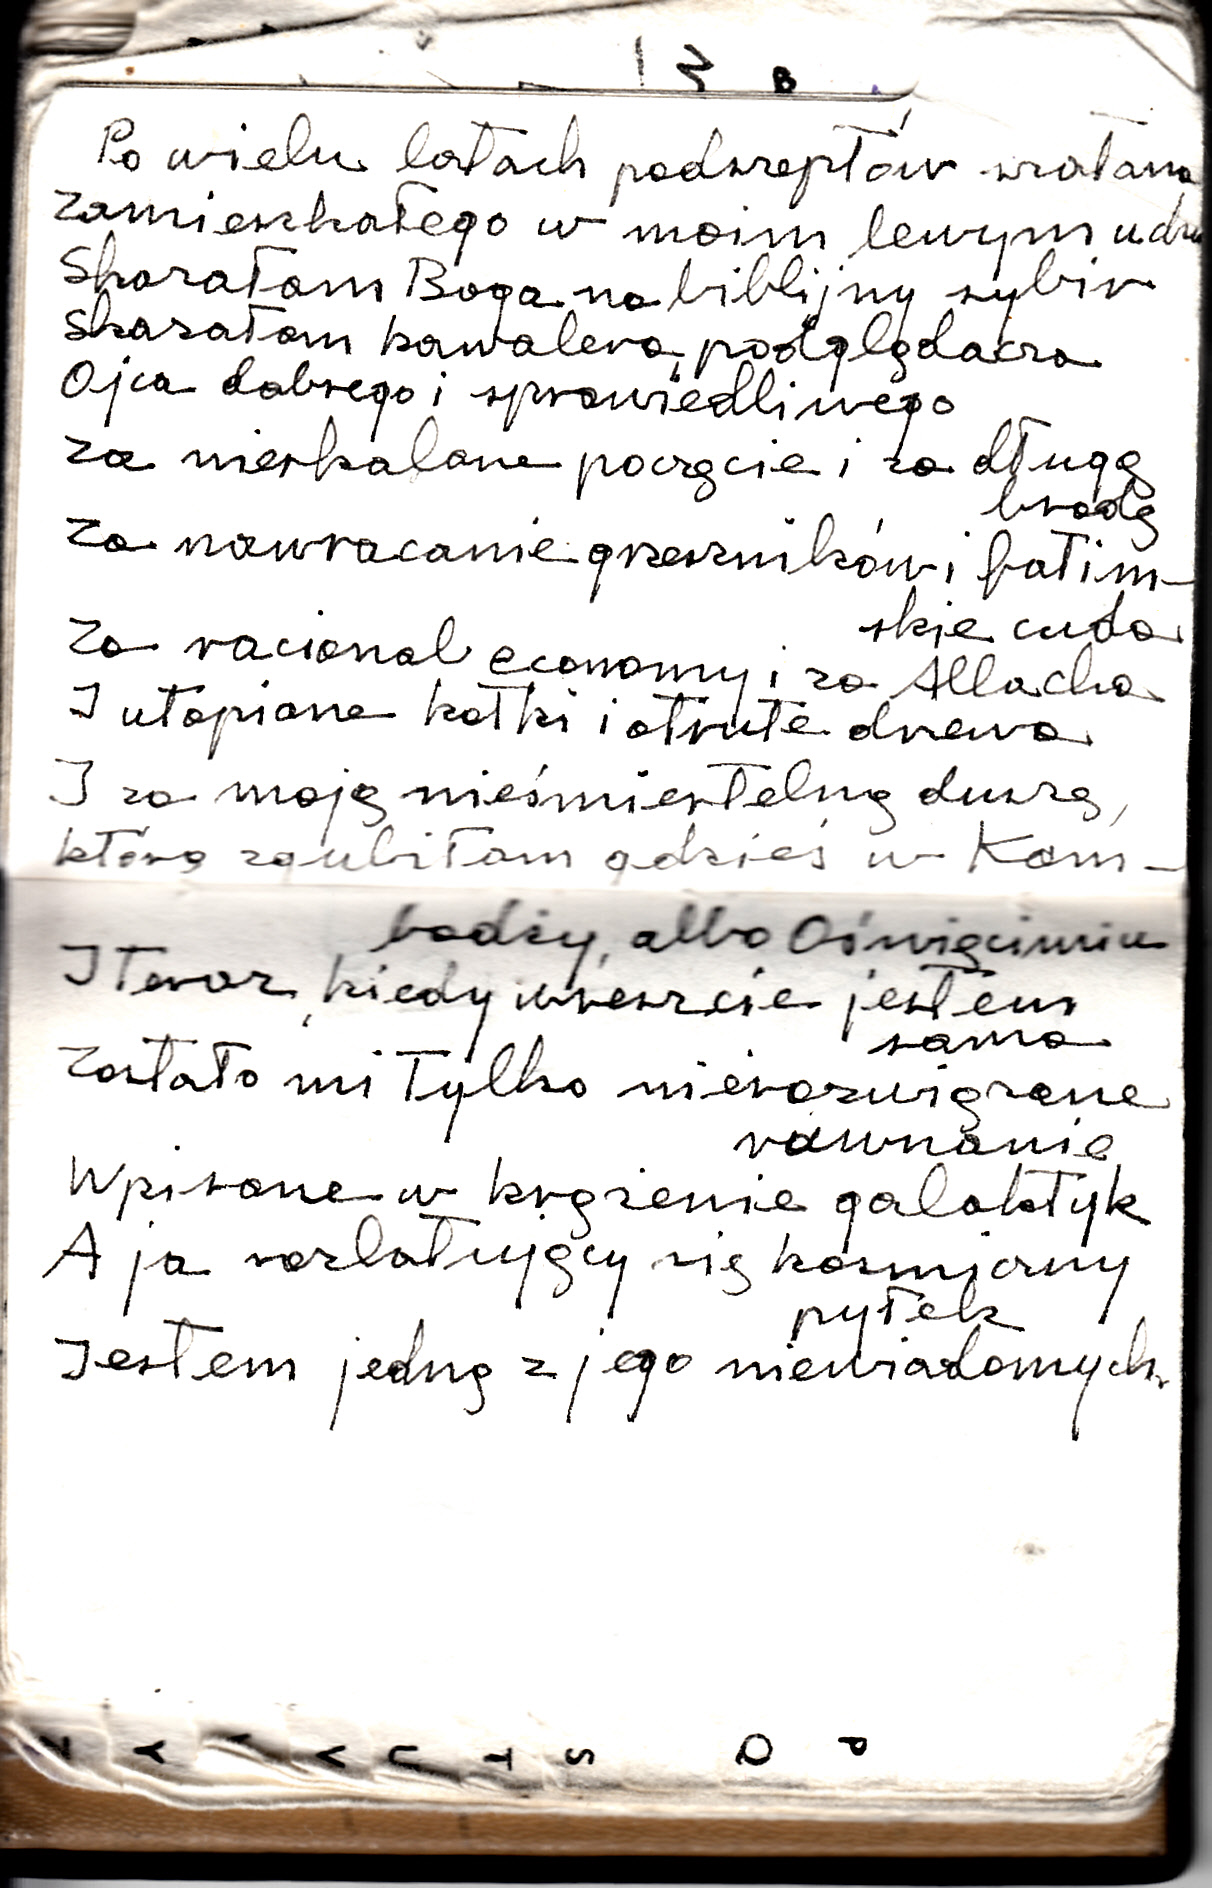 Po wielu latach podszeptów szatana
zamieszkałego w moim lewym udzu
Skazałam Boga na biblijny sybir
skazałam kawalera, podglądacza
Ojca dobrego i sprawiedliwego
za nieskalane poczęcie i za długą
brodę
za nawracanie grzeszników i fatim-
skie cuda
za racional economy i za Allacha
I utopione kotki i otrute drzewa
I za moją nieśmiertelną duszę,
którą zgubiłam gdzieś w Kam-
bodży, albo Oświęcimiu
I teraz, kiedy wreszcie jestem
sama
zostało mi tylko nierozwiązane
równanie
Wpisane w krążenie galaktyk
A ja rozlatujący się kosmiczny
pyłek
Jestem jedną z jego niewiadomych.